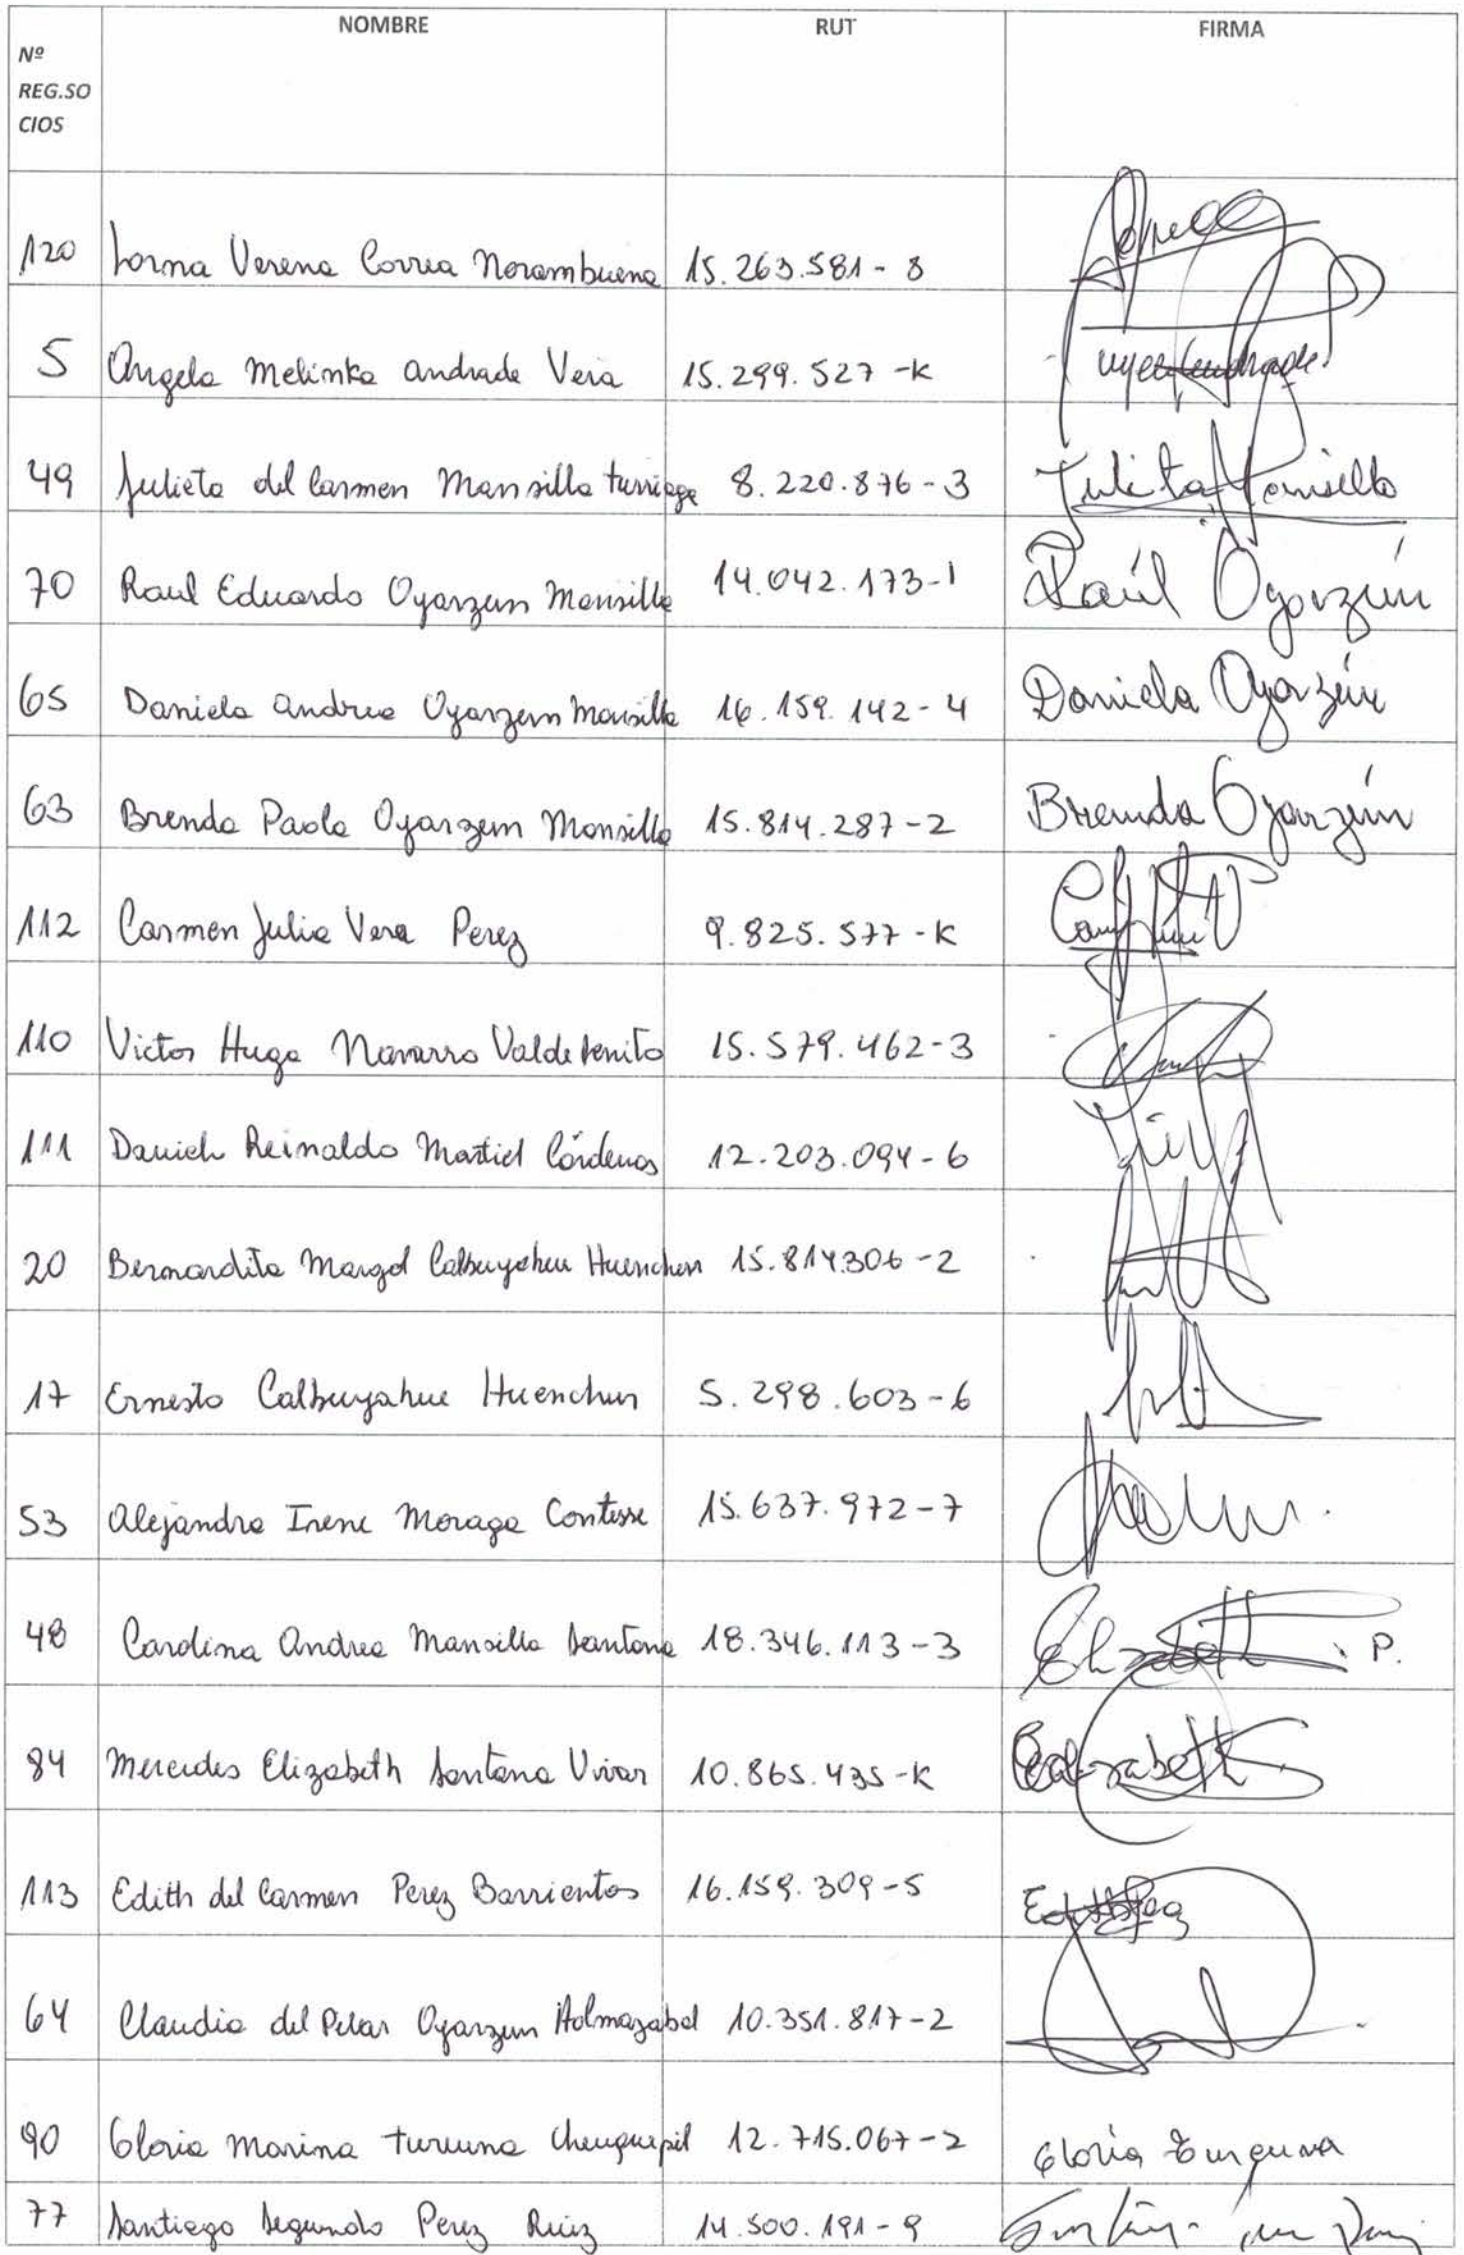 Nº REG.SO CIOS NOMBRE RUT FIRMA
120 Lorna Verena Correa Norambuena 15.263.581-8
5 Angela Melinka Andrade Vera 15.299.527-K
49 Julieta del Carmen Mansilla Turriaga 8.220.876-3 Julieta Mansilla
70 Raul Eduardo Oyarzun Mansilla 14.042.173-1 Raúl Oyarzún
65 Daniela Andrea Oyarzun Mansilla 16.159.142-4 Daniela Oyarzún
63 Brenda Paola Oyarzun Mansilla 15.814.287-2 Brenda Oyarzún
112 Carmen Julia Vera Perez 9.825.577-K
110 Victor Hugo Navarro Valdebenito 15.579.462-3
111 Daniel Reinaldo Martiel Cárdenas 12.203.094-6
20 Bernardita Margot Calbuyahue Huenchur 15.814.306-2
17 Ernesto Calbuyahue Huenchur 5.298.603-6
53 Alejandra Irene Moraga Contesse 15.637.972-7
48 Carolina Andrea Mansilla Santana 18.346.113-3 P.
84 Mercedes Elizabeth Santana Vivar 10.865.435-K
113 Edith del Carmen Perez Barrientos 16.159.309-5
64 Claudia del Pilar Oyarzun Holmazabal 10.351.817-2
90 Gloria Marina Turcuna Cheuquepil 12.715.067-2 Gloria Turcuna
77 Santiago Segundo Perez Ruiz 14.500.191-9